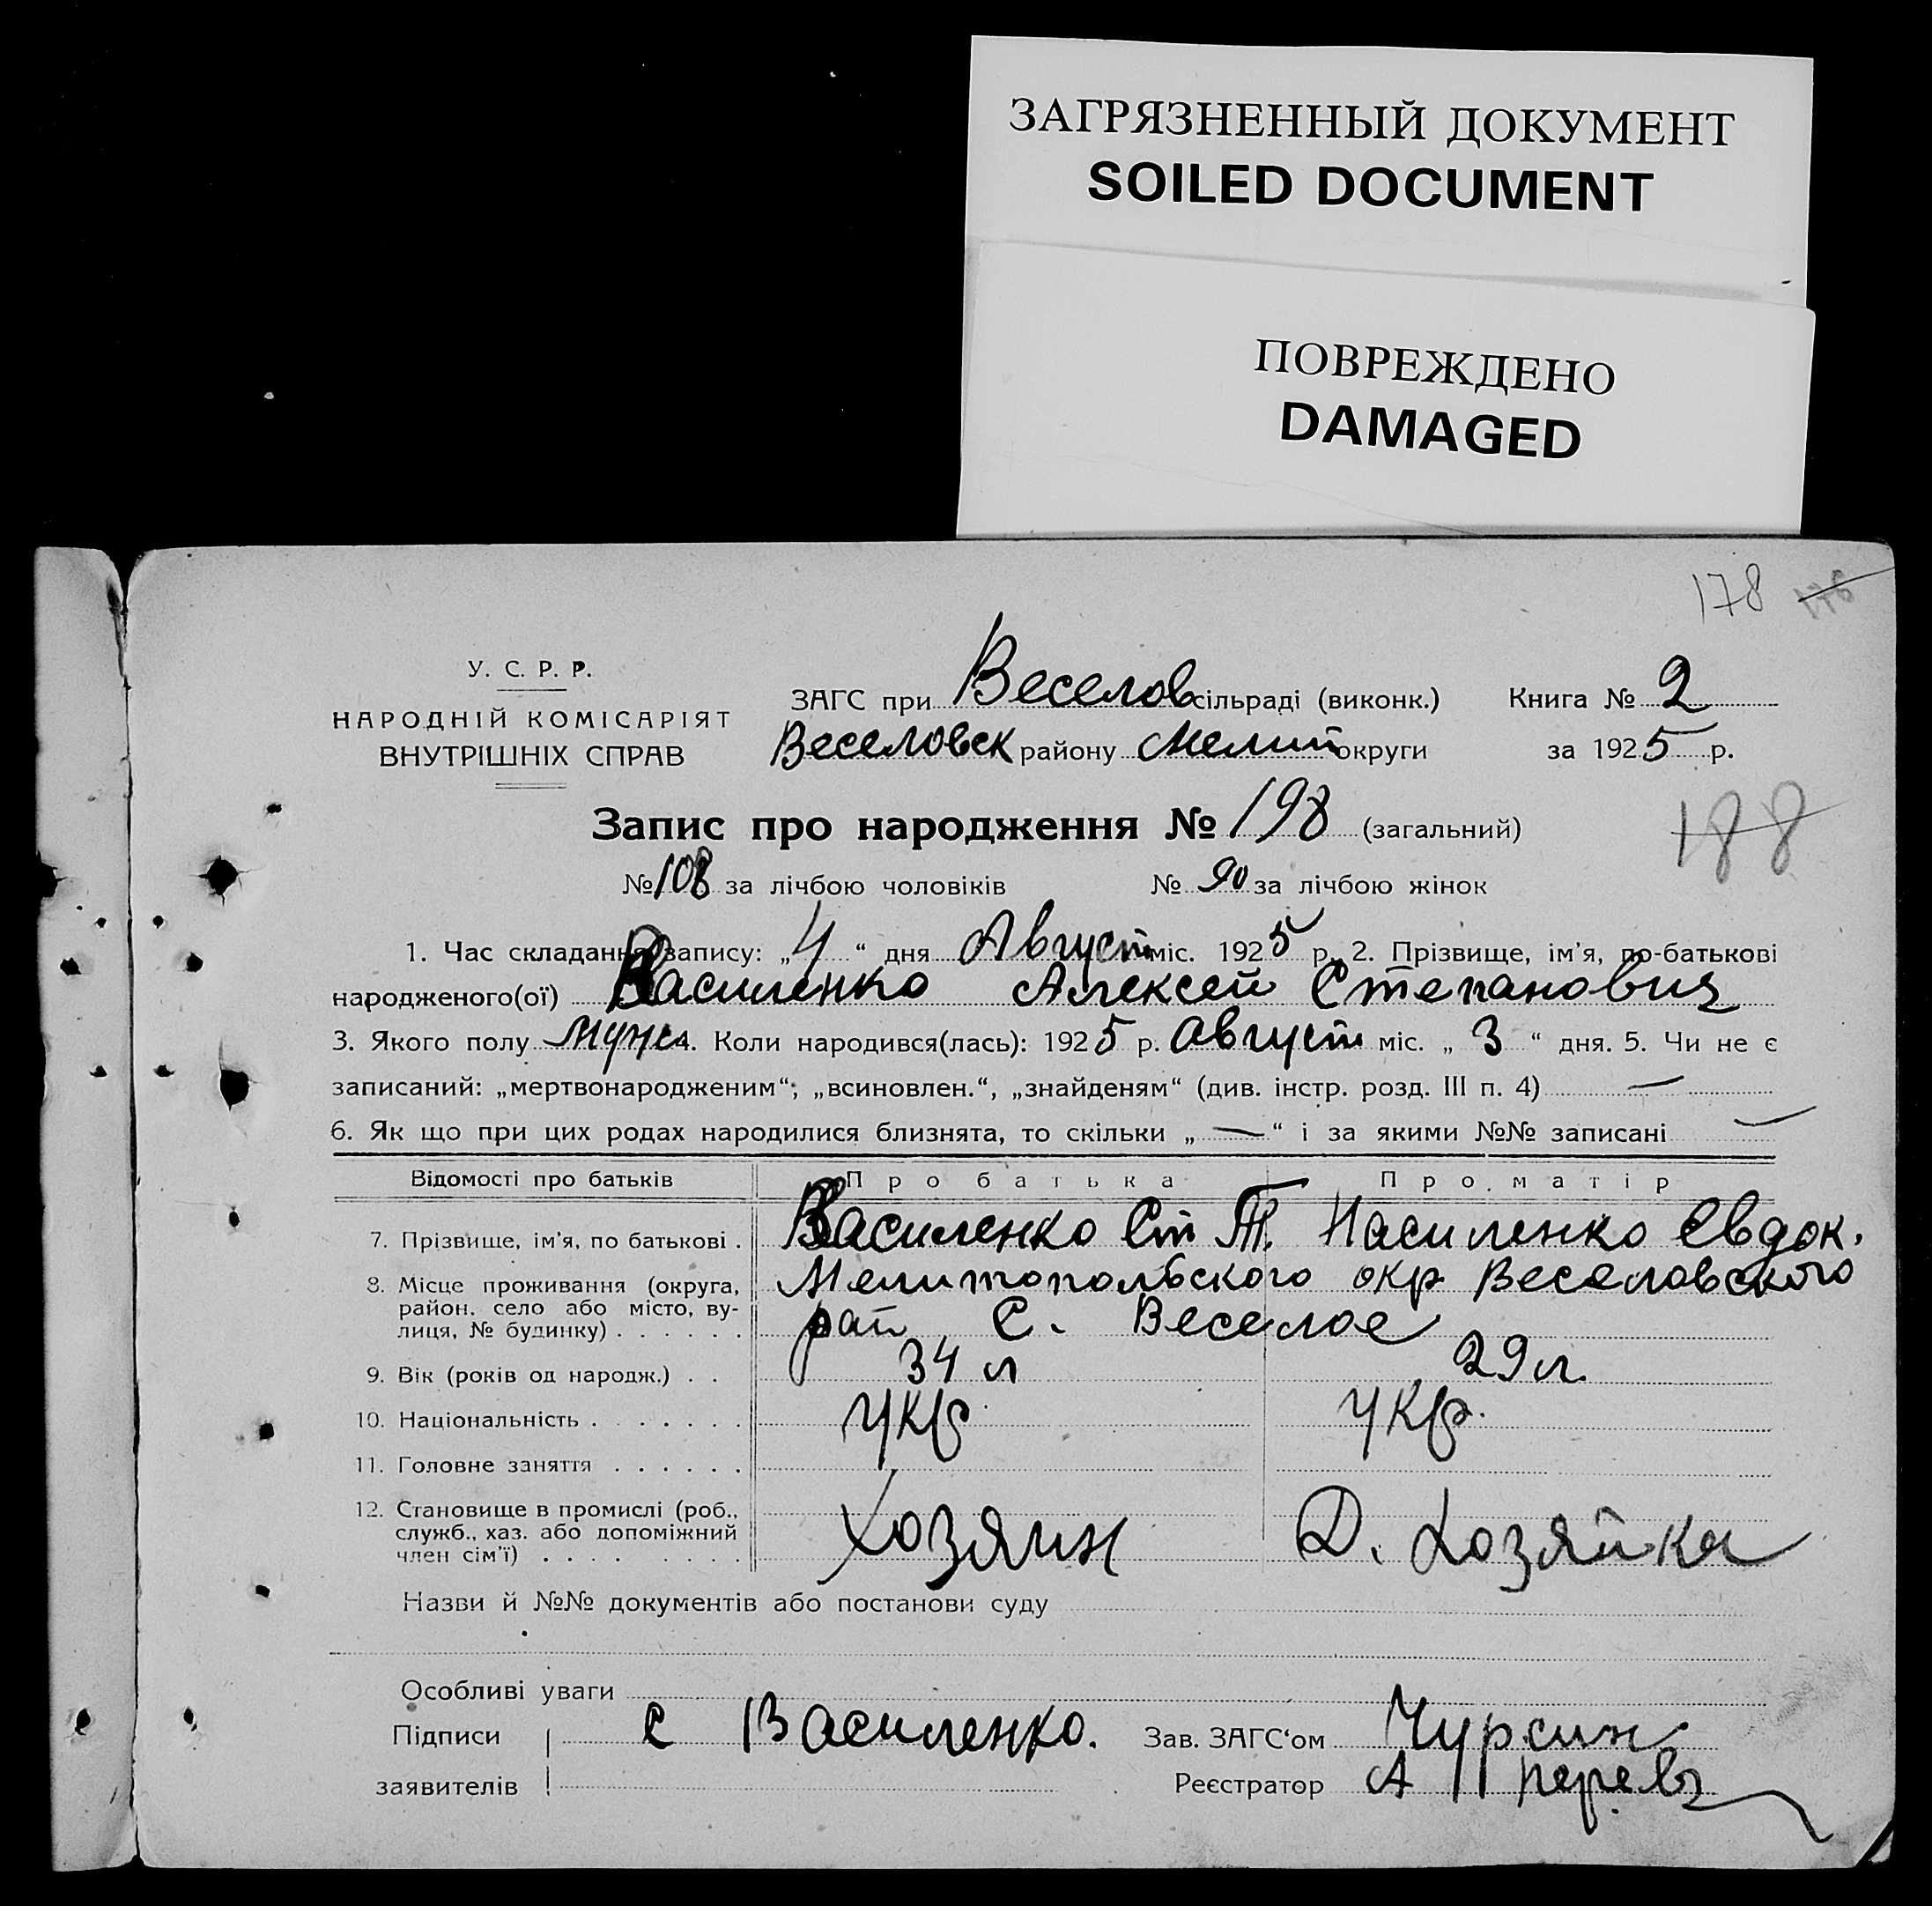 ЗАГРЯЗНЕННЫЙ ДОКУМЕНТ
SOILED DOCUMENT
ПОВРЕЖДЕНО
DAMAGED
178
У. С. Р. Р.
НАРОДНІЙ КОМІСАРІЯТ
ВНУТРІШНІХ СПРАВ
ЗАГС при Веселов сільраді (виконк.) Книга № 2
Веселовск району Мелит округи за 1925 р.
Запис про народження № 198 (загальний)
188
№ 108 за лічбою чоловіків № 90 за лічбою жінок
1. Час складання запису: „4“ дня Август міс. 1925 р. 2. Прізвище, ім'я, по-батькові
народженого(ої) Василенко Алексей Степанович
3. Якого полу муж. 4. Коли народився(лась): 1925 р. Август міс. „3“ дня. 5. Чи не є
записаний: „мертвонародженим“; „всиновлен.“, „знайденям“ (див. інстр. розд. III п. 4) —
6. Як що при цих родах народилися близнята, то скільки „—“ і за якими №№ записані —
Відомості про батьків Про батька Про матір
7. Прізвище, ім'я, по батькові . Василенко Ст Т. Василенко Евдок.
8. Місце проживання (округа, район, село або місто, ву-
лиця, № будинку) . . . . . . Мелитопольского окр Веселовского
рай С. Веселое
9. Вік (років од народж.) . . 34 л 29 л.
10. Національність . . . . . . . Укр. Укр.
11. Головне заняття . . . . . .
12. Становище в промислі (роб.,
служб., хаз. або допоміжний
член сім'ї) . . . . . . . . Хозяин Д. Хозяйка
Назви й №№ документів або постанови суду
Особливі уваги
Підписи С Василенко. Зав. ЗАГС'ом Чурсин
заявителів Реєстратор А